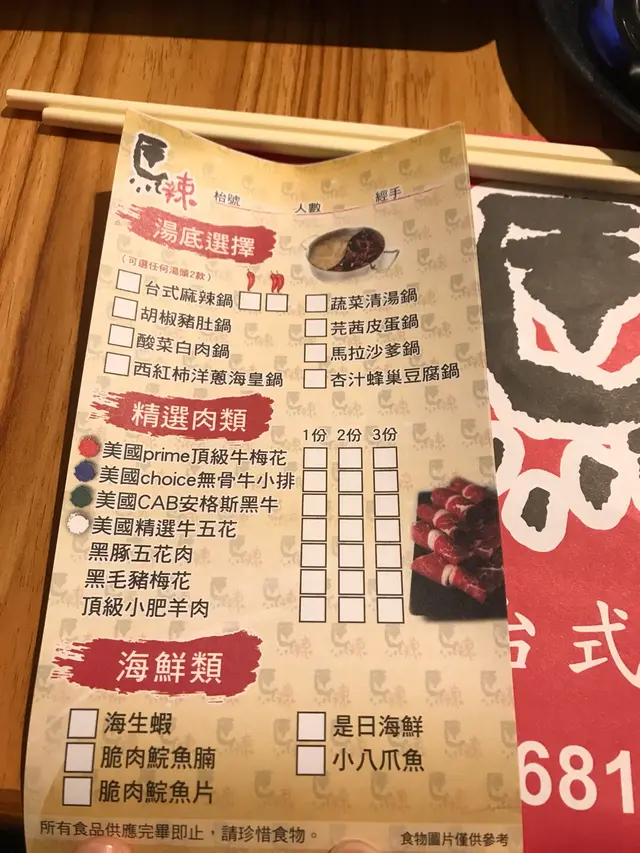 馬辣
枱號 人數 經手
湯底選擇
(可選任何湯頭2款)
台式麻辣鍋
胡椒豬肚鍋
酸菜白肉鍋
西紅柿洋蔥海皇鍋
蔬菜清湯鍋
芫茜皮蛋鍋
馬拉沙爹鍋
杏汁蜂巢豆腐鍋
精選肉類
1份 2份 3份
美國prime頂級牛梅花
美國choice無骨牛小排
美國CAB安格斯黑牛
美國精選牛五花
黑豚五花肉
黑毛豬梅花
頂級小肥羊肉
海鮮類
海生蝦
脆肉鯇魚腩
脆肉鯇魚片
是日海鮮
小八爪魚
所有食品供應完畢即止，請珍惜食物。
食物圖片僅供參考
台式
681